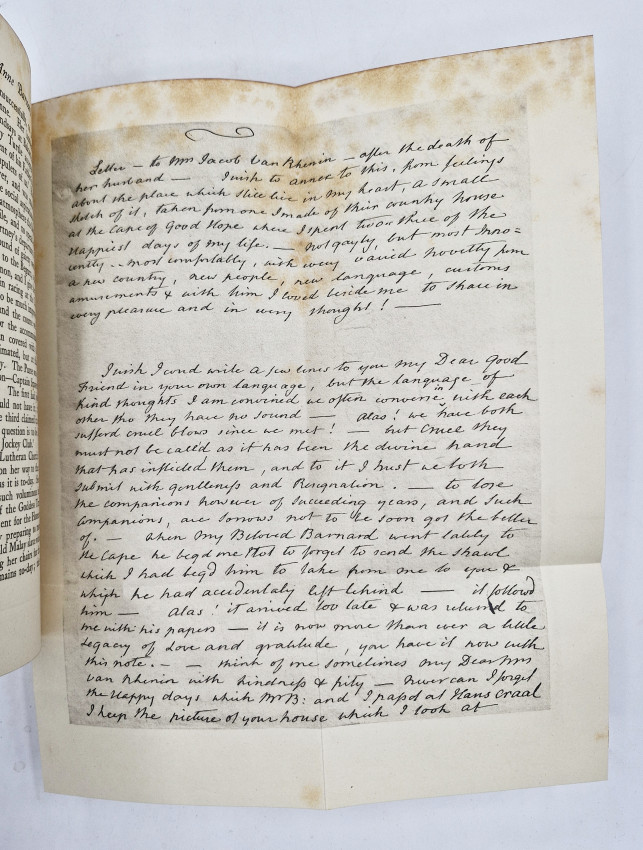 Anne Bar
Letter – to Mrs Jacob Van Rhenin – after the death of
her husband — I wish to annex to this, from feelings
about the place which still live in my heart, a small
sketch of it, taken from one I made of their country house
at the Cape of Good Hope where I spent two or three of the
Happiest days of my life. – not gayly, but most Inno=
cently – most comfortably, with every varied novelty from
a new country, new people, new language, customs
amusements & with him I loved beside me to share in
every pleasure and in every thought! —
I wish I coud write a few lines to you my Dear Good
Friend in your own language, but the language of
Kind thoughts I am convinced we often converse in with each
other tho they have no sound — alas! we have both
sufferd cruel blows since we met! – but Cruel they
must not be call'd as it has been the divine hand
that has inflicted them, and to it I trust we both
submit with gentleness and Resignation. – to lose
the companions however of succeeding years, and such
Companions, are sorrows not to be soon got the better
of. – when my Beloved Barnard went lately to
the Cape he begd me Not to forget to send the shawl
which I had begd him to take from me to you &
which he had accidentaly left behind — it followd
him — alas! it arrived too late & was returnd to
me with his papers – it is now more than ever a little
Legacy of Love and gratitude, you have it now with
this note. – – think of me sometimes my Dear Mrs
Van Rhenin with kindness & pity – never can I forget
the Happy days which Mr B: and I pass'd at Hans Craal
I keep the picture of your house which I look at
Jockey Club.
Lutheran Chur
on her way to th
as it is to-day.